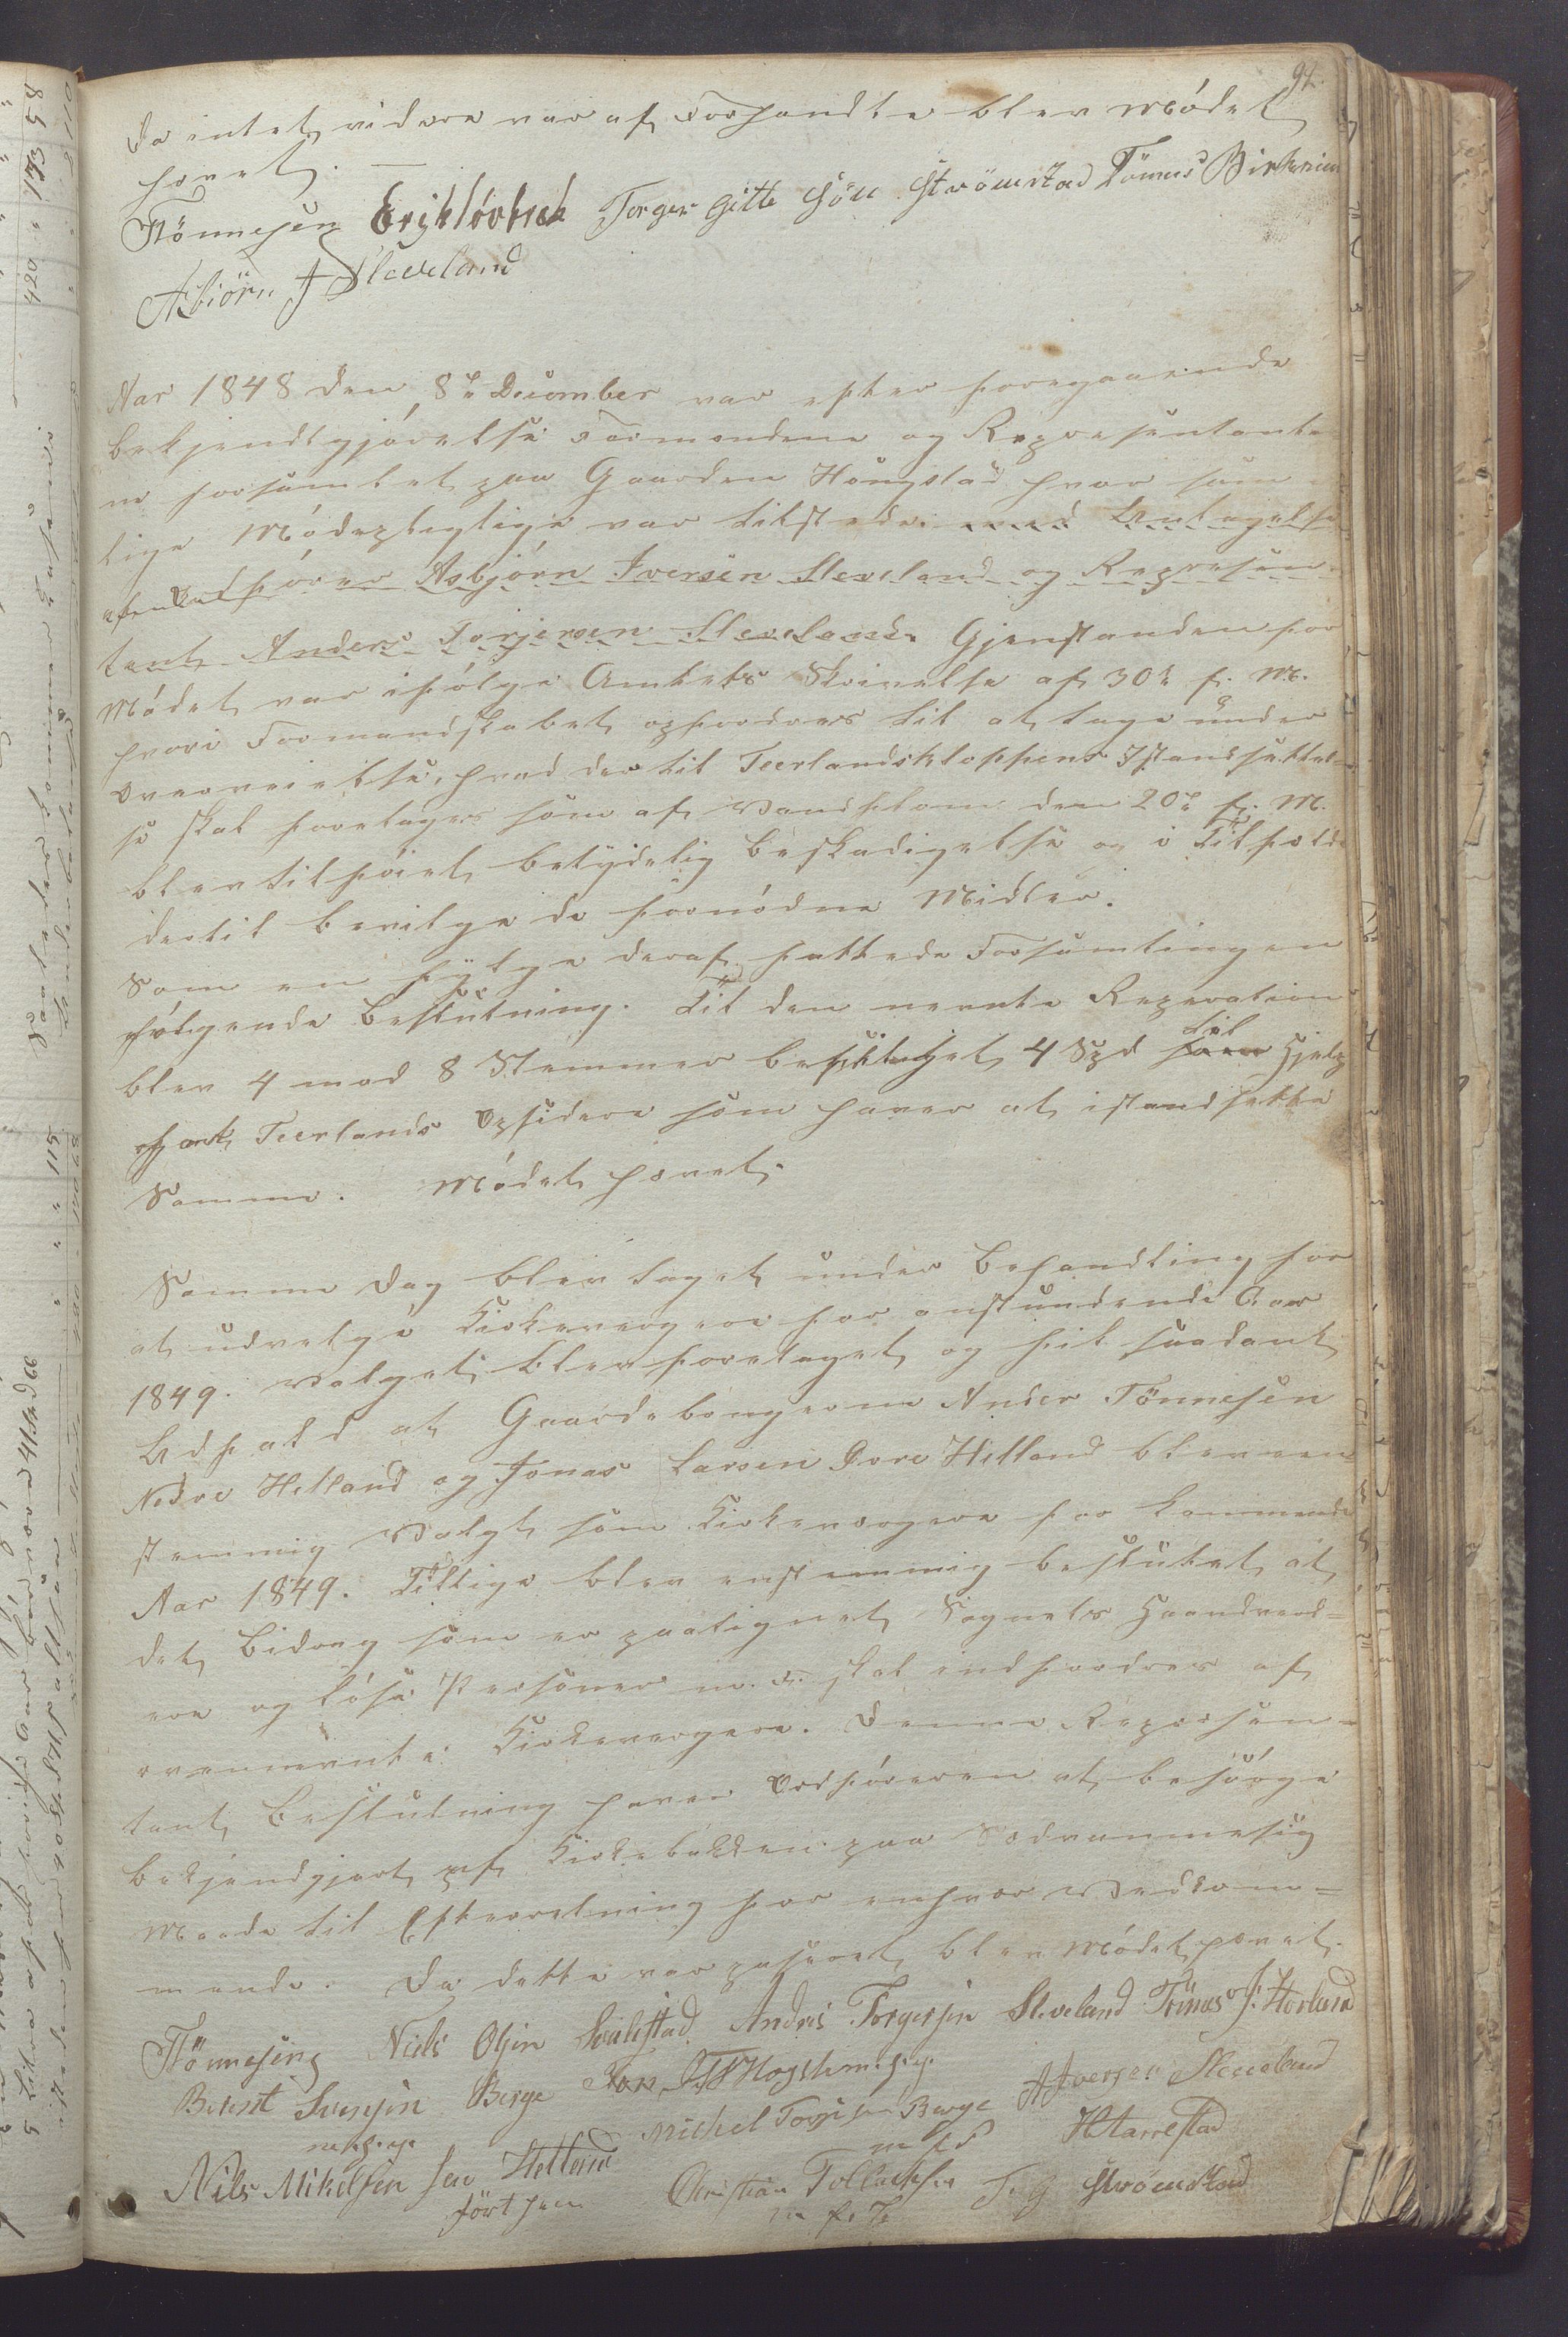 94.
Da intet videre var af Forhandle blev Mödet
hævet.
TTönnesen Torger Gitte Sön Strömstad Tönnes Birkrem
Asbiörn I Sleveland
Aar 1848 den 8de December var efter foregaaende
bekjendtgjörelse Formændene og Repræsentante
ne forsamlet paa Gaarden Hougstad hvor sam
tlige Mödepligtige var tilstede med Undtagelse
af Ordförer Asbjörn Iversen Sleveland og Repræsen
tant Anders Torjersen Sleveland. Gjenstanden for
Mödet var ifölge Amtets Skrivelse af 30te f. M.
hvori Formandskabet opfordres til at tage under
Overveielse, hvad der til Teerlandskloppens Istandsættel
se skal foretages som af Vandflom den 20de f. M.
blev tilföiet betydelig beskadigelse og i Tilfælde
dertil bevilge de fornödne Midler.
Som en fylge deraf fattede Forsamlingen
fölgende Beslutning. Til den nævnte Reperation
blev 4 mod 8 Stemmer besluttet 4 Spd til Hjelp
Teerlands Opsidere som haver at istandsætte
Samme. Mödet hævet.
Samme Dag blev taget under Behandling for
at udvelge Kirkeværgere for anstundende Aar
1849. Valget blev foretaget og fik saadant
Udfald at Gaardebrugerne Ander Tönnesen
Nedre Helland og Jonas Larsen Övre Helland blev een
stemmig Valgt som Kirkeværgere for kommende
Aar 1849. Tillige blev enstemmig besluttet at
det Bidrag som er paalignet Sognets Haandverk=
ere og löse Personer m. v. skal indfordres af
ovennævnte Kirkeværgere. Denne Repræsen=
tant Beslutning haver Ordföreren at besörge
bekjendgjort af Kirkebakken paa Sædvanmesig
Maade til Efterretning for enhver Vedkom=
mende. Da dette var paseret blev Mödet hævet.
TTönnesen Niels Olsen Svalestad Anders Torgersen Sleveland Tönnes J. Horland
Berent Svensen Berge m. f. p.
m. h. p. p. Michel Torjesen Berge A Iversen Sleveland
Nils Mikelsen Sen Helland m f P HTarrestad
fört pen Christian Tollachsen T. G Strömstad
m f. P.